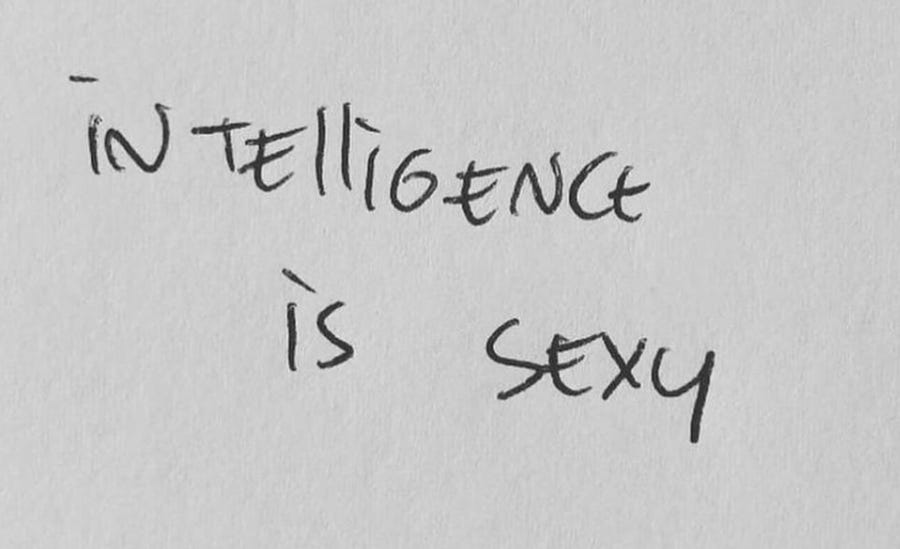 iNTElliGENCE
is SEXY